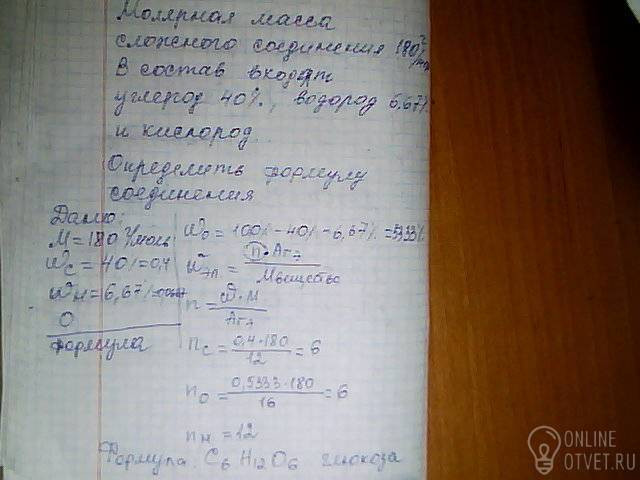 Молярная масса
сложного соединения 180 г/моль
В состав входят
углерод 40%, водород 6.67%
и кислород
Определить формулу
соединения
Дано:
M = 180 г/моль
ωC = 40% = 0,4
ωH = 6,67%
O
формула
ωO = 100% - 40% - 6,67% = 53,33%
ωэл = n · Arэ / Mвещество
n = ω · M / Arэ
nC = 0,4 · 180 / 12 = 6
nO = 0,5333 · 180 / 16 = 6
nH = 12
Формула C6H12O6 глюкоза
ONLINE
OTVET.RU